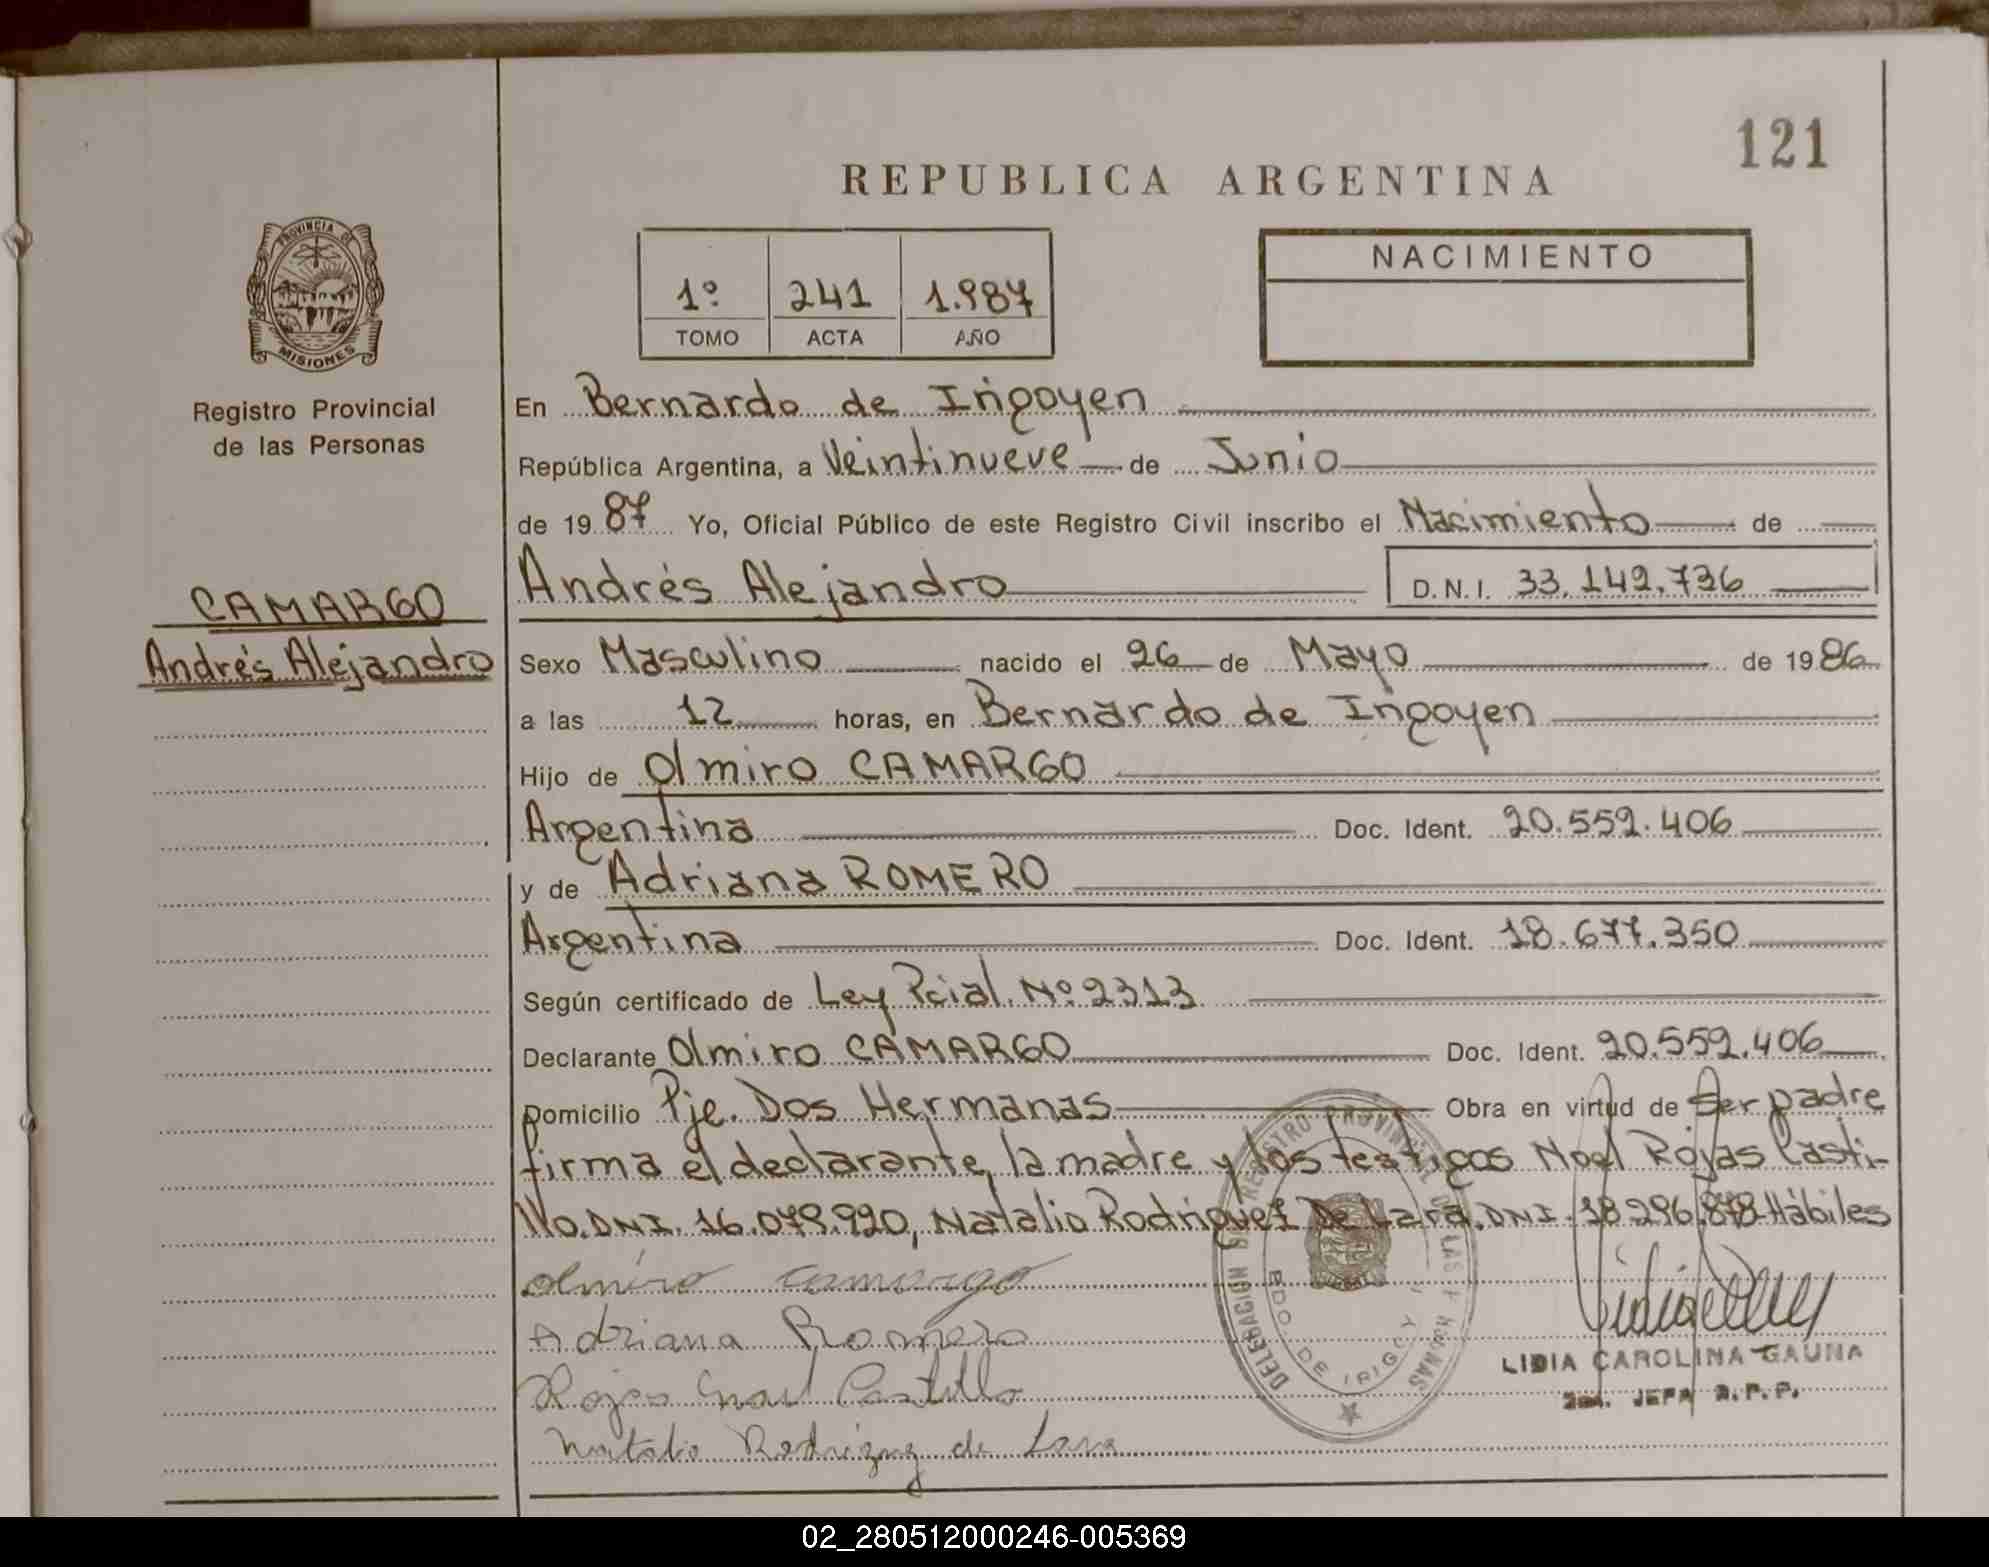 121
REPUBLICA ARGENTINA
PROVINCIA DE
MISIONES
Registro Provincial
de las Personas
1º 241 1.987
TOMO ACTA AÑO
NACIMIENTO
En Bernardo de Irigoyen
República Argentina, a Veintinueve de Junio
de 19 87 Yo, Oficial Público de este Registro Civil inscribo el Nacimiento de
CAMARGO
Andrés Alejandro
Andrés Alejandro D.N.I. 33.142.736
Sexo Masculino nacido el 26 de Mayo de 1986
a las 12 horas, en Bernardo de Irigoyen
Hijo de Olmiro CAMARGO
Argentina Doc. Ident. 20.552.406
y de Adriana ROMERO
Argentina Doc. Ident. 18.677.350
Según certificado de Ley Pcial. Nº 2313
Declarante Olmiro CAMARGO Doc. Ident. 20.552.406
Domicilio Pje. Dos Hermanas Obra en virtud de Ser padre
firma el declarante, la madre y los testigos Noel Rojas Casti-
llo. DNI. 16.079.920, Natalio Rodriguez De Lara. DNI. 18.296.878 Hábiles
Olmiro Camargo
Adriana Romero
Rojas Noel Castillo
Natalio Rodriguez de Lara
DELEGACION REGISTRO PROVINCIAL DE LAS PERSONAS
BDO DE IRIGOY
LIDIA CAROLINA GAUNA
JEFA R.P.P.
02_280512000246-005369